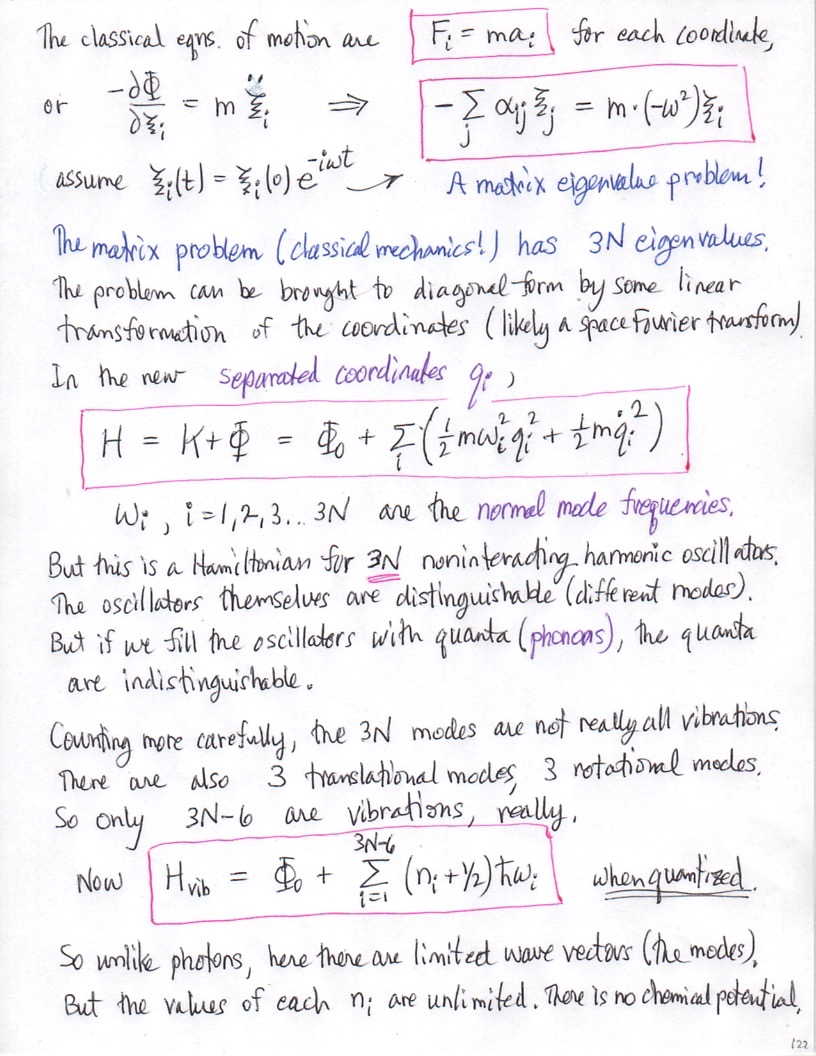 The classical eqns. of motion are F_i = ma_i for each coordinate,
or -∂Φ/∂ξ_i = m ξ̈_i ⇒ -∑_j α_ij ξ_j = m·(-ω²)ξ_i
assume ξ_i(t) = ξ_i(0) e^{-iωt} → A matrix eigenvalue problem!
The matrix problem (classical mechanics!) has 3N eigenvalues.
The problem can be brought to diagonal form by some linear
transformation of the coordinates (likely a space Fourier transform)
In the new separated coordinates q_i,
H = K+Φ = Φ_0 + ∑_i (½mω_i²q_i² + ½mq̇_i²)
ω_i, i=1,2,3...3N are the normal mode frequencies.
But this is a Hamiltonian for 3N noninteracting harmonic oscillators.
The oscillators themselves are distinguishable (different modes).
But if we fill the oscillators with quanta (phonons), the quanta
are indistinguishable.
Counting more carefully, the 3N modes are not really all vibrations.
There are also 3 translational modes, 3 rotational modes.
So only 3N-6 are vibrations, really.
Now H_vib = Φ_0 + ∑_{i=1}^{3N-6} (n_i+½)ħω_i when quantized.
So unlike photons, here there are limited wave vectors (the modes).
But the values of each n_i are unlimited. There is no chemical potential.
122